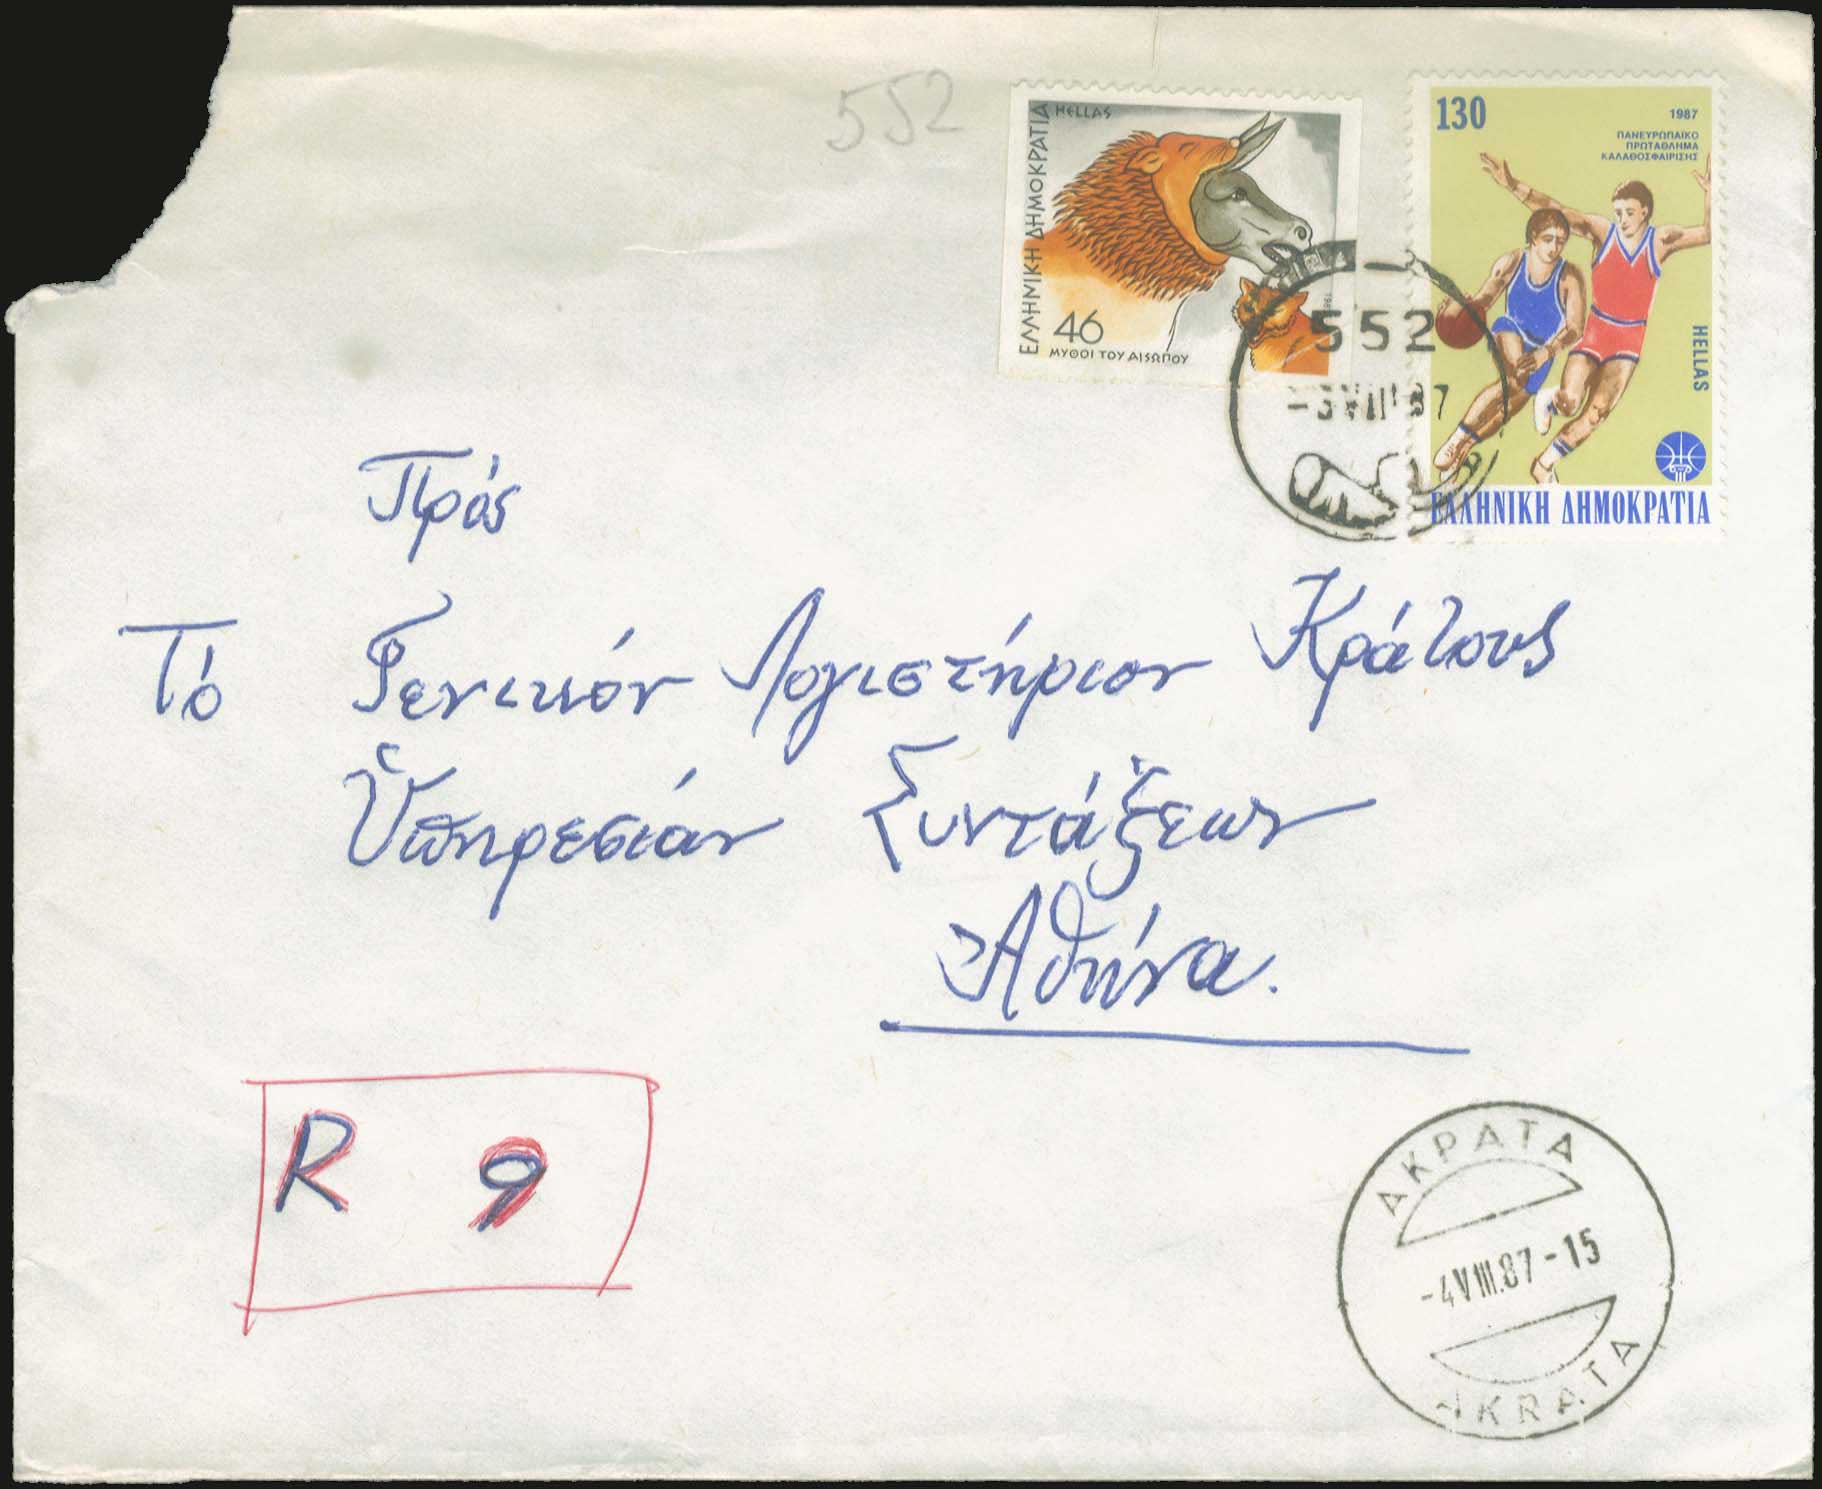 552
ΕΛΛΗΝΙΚΗ ΔΗΜΟΚΡΑΤΙΑ
HELLAS
46
ΜΥΘΟΙ ΤΟΥ ΑΙΣΩΠΟΥ
130
1987
ΠΑΝΕΥΡΩΠΑΪΚΟ
ΠΡΩΤΑΘΛΗΜΑ
ΚΑΛΑΘΟΣΦΑΙΡΙΣΗΣ
HELLAS
ΕΛΛΗΝΙΚΗ ΔΗΜΟΚΡΑΤΙΑ
552
-3 VIII 87
Πρός
Τό Γενικόν Λογιστήριον Κράτους
Ὑπηρεσίαν Συντάξεων
Ἀθήνα.
R 9
ΑΚΡΑΤΑ
-4 VIII.87-15
AKRATA